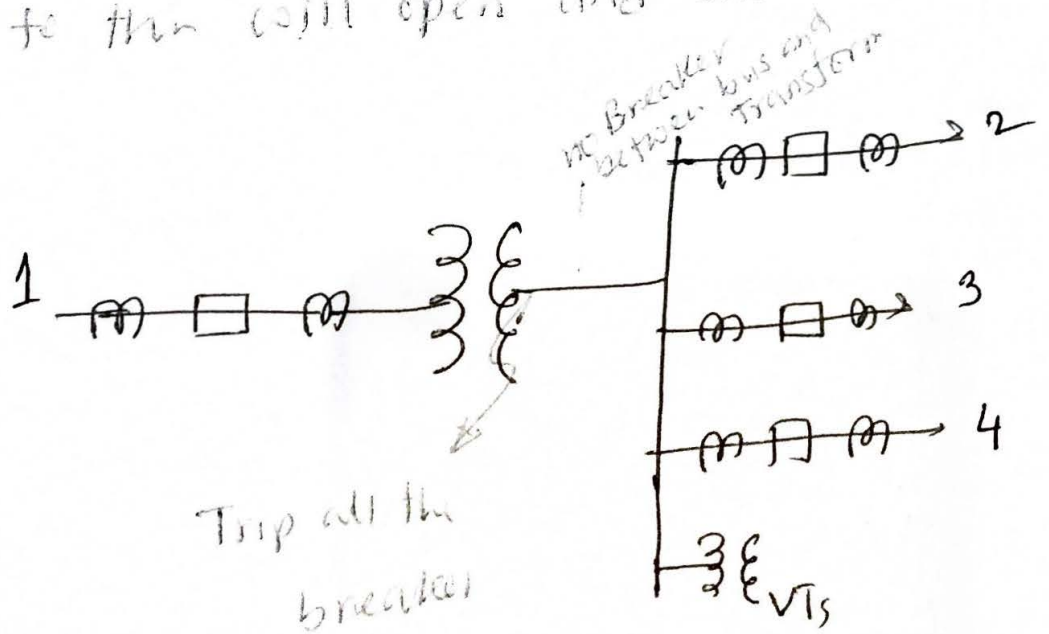 to the will open
no Breaker
between bus and
Transform
2
1
3
4
Trip all the
breaker
VTs